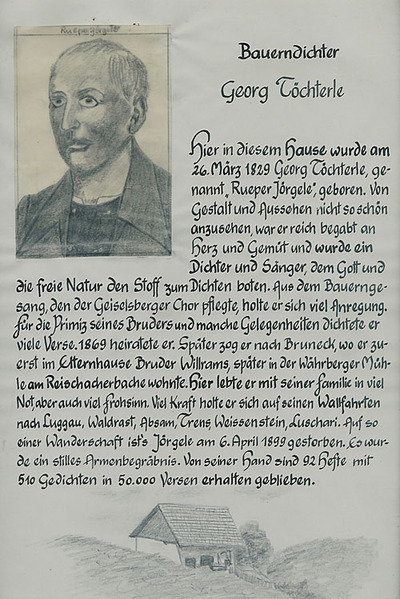 Rueperjörgele
Bauerndichter
Georg Töchterle
Hier in diesem Hause wurde am
26. März 1829 Georg Töchterle, ge-
nannt „Rueper Jörgele", geboren. Von
Gestalt und Aussehen nicht so schön
anzusehen, war er reich begabt an
Herz und Gemüt und wurde ein
Dichter und Sänger, dem Gott und
die freie Natur den Stoff zum Dichten boten. Aus dem Bauernge-
sang, den der Geiselsberger Chor pflegte, holte er sich viel Anregung.
Für die Primiz seines Bruders und manche Gelegenheiten dichtete er
viele Verse. 1869 heiratete er. Später zog er nach Bruneck, wo er zu-
erst im Elternhause Bruder Willrams, später in der Währberger Müh-
le am Reischacherbache wohnte. Hier lebte er mit seiner Familie in viel
Not, aber auch viel Frohsinn. Viel Kraft holte er sich auf seinen Wallfahrten
nach Luggau, Waldrast, Absam, Trens, Weissenstein, Luschari. Auf so
einer Wanderschaft ist's Jörgele am 6. April 1899 gestorben. Es wur-
de ein stilles Armenbegräbnis. Von seiner Hand sind 92 Hefte mit
510 Gedichten in 50.000 Versen erhalten geblieben.